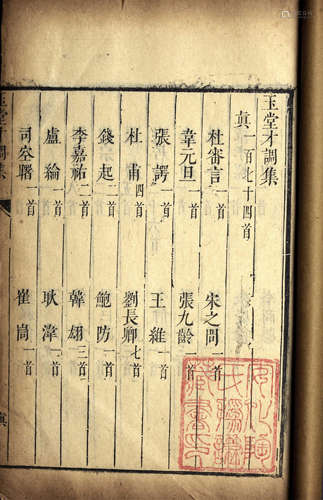 玉堂才調集
真一百七十四首
杜審言一首 宋之問一首
韋元旦一首 張九齡一首
張諤一首 王維一首
杜甫四首 劉長卿七首
錢起二首 鮑防一首
李嘉祐二首 韓翃三首
盧綸一首 耿湋一首
司空曙一首 崔峒一首
玉堂才調集
真